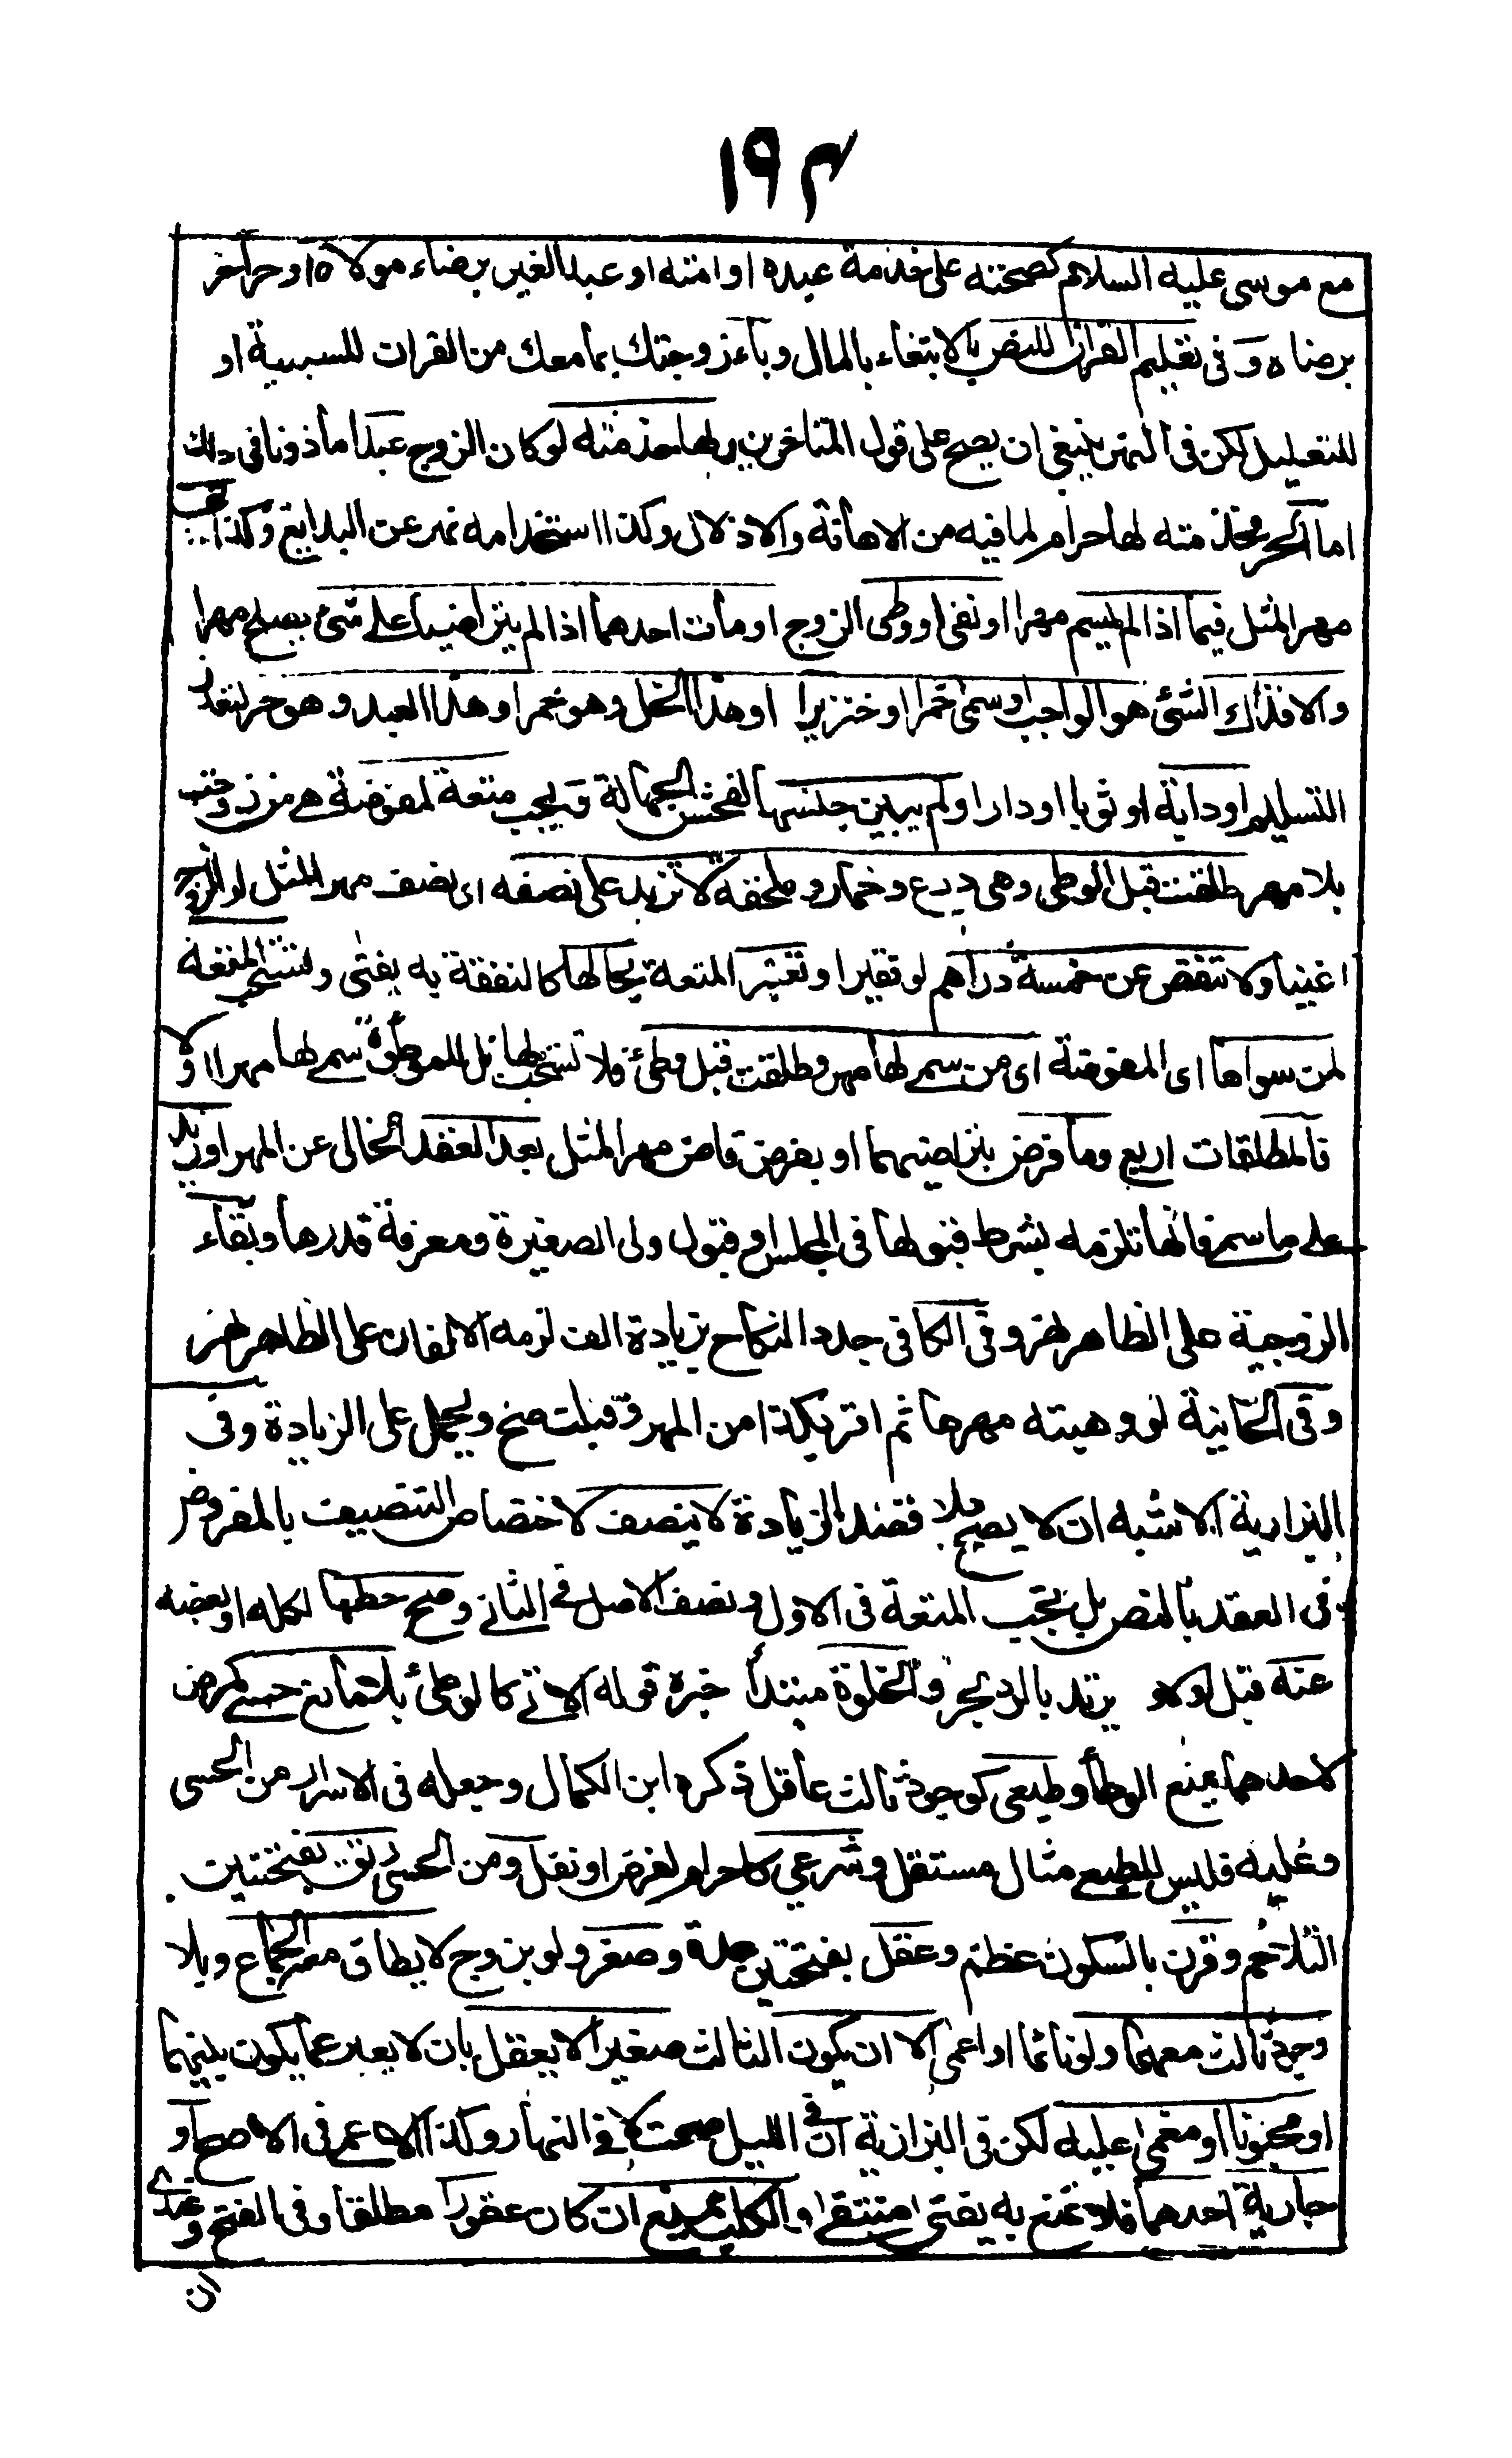 ١٩٣
مع موسى عليه السلام كصحته على خدمة عبده او امته او عبد الغير برضاء مولاه او حر آخر
برضاه و فى تعليم القرآن للنص بالابتغاء بالمال و باء زوجتك بما معك من القرآن للسببية او
للتعليل لكن فى النهر ينبغى ان يصح على قول المتاخرين ولها خدمته لو كان الزوج عبدا ماذونا فى ذلك
اما الحر فخدمته لها حرام لما فيه من الاهانة والاذلال وكذا استخدامه نهر عن البدايع وكذا يجب
مهر المثل فيما اذا لم يسم مهرا او نفى او وطى الزوج او مات احدهما اذا لم يتراضيا على شئ يصلح مهرا
والا فذاك الشئ هو الواجب او سمى خمرا او خنزيرا او هذا الخل وهو خمر او هذا العبد وهو حر لتعذر
التسليم او دابة او ثوبا او دارا ولم يبين جنسها لفحش الجهالة و يجب متعة لمفوضة هى من زوجت
بلا مهر طلقت قبل الوطى وهى درع وخمار و ملحفة لا تزيد على نصفه اى نصف مهر المثل لو الزوج
غنيا ولا تنقص عن خمسة دراهم لو فقيرا و تعتبر المتعة بحالها كالنفقة به يفتى و تستحب المتعة
لمن سواها اى المفوضة اى من سمى لها مهر و طلقت قبل وطئ فلا تستحب لها بل للموطوءة سمى لها مهرا او لا
فالمطلقات اربع وما فرض بتراضيهما او بفرض قاض مهر المثل بعد العقد الخالى عن المهر او زيد
على ما سمى فانها تلزمه بشرط قبولها فى المجلس او قبول ولى الصغيرة و معرفة قدرها و بقاء
الزوجية على الظاهر نهر و فى الكافى جدد النكاح بزيادة الف لزمه الالفان على الظاهر نهر
و فى الخانية لو وهبته مهرها ثم اقر بكذا من المهر و قبلت صح و يحمل على الزيادة و فى
البزازية الاشبه ان لا يصح بلا قصد الزيادة لا ينصف لاختصاص التنصيف بالمفروض
فى العقد بالنص بل تجب المتعة فى الاول و نصف الاصل فى الثانى و صح حطها لكله او بعضه
عنه قبل او لا و يرتد بالرد بحر و الخلوة مبتدأ خبره قوله الاتى كالوطئ بلا مانع حسى كمرض
لاحدهما يمنع الوطأ و طبعى كوجود ثالث عاقل ذكره ابن الكمال و جعله فى الاسرار من الحسى
و عليه فليس للطبعى مثال مستقل و شرعى كاحرام لفرض او نفل و من الحسى رتق بفتحتين
التلاحم و قرن بالسكون عظم و عفل بفتحتين غدة و صغر ولو بزوج لا يطاق معه الجماع و بلا
وجود ثالث معهما ولو نائما او اعمى الا ان يكون الثالث صغيرا لا يعقل بان لا يعبر عما يكون بينهما
او مجنونا او مغمى عليه لكن فى البزازية ان فى الليل صحت لا فى النهار وكذا الاعمى فى الاصح او
جارية احدهما فلا تمنع به يفتى مبتغى و الكلب يمنع ان كان عقورا مطلقا و فى الفتح و عندى
ان